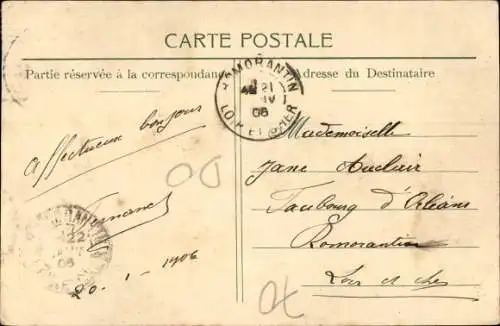 CARTE POSTALE
Partie réservée à la correspondance
Adresse du Destinataire
ROMORANTIN
21
06
LOIR ET CHER
Affectueux bonjour
Fernand
20-1-1906
Mademoiselle
Jane Auclair
Faubourg d'Orléans
Romorantin
Loir et cher
22
06